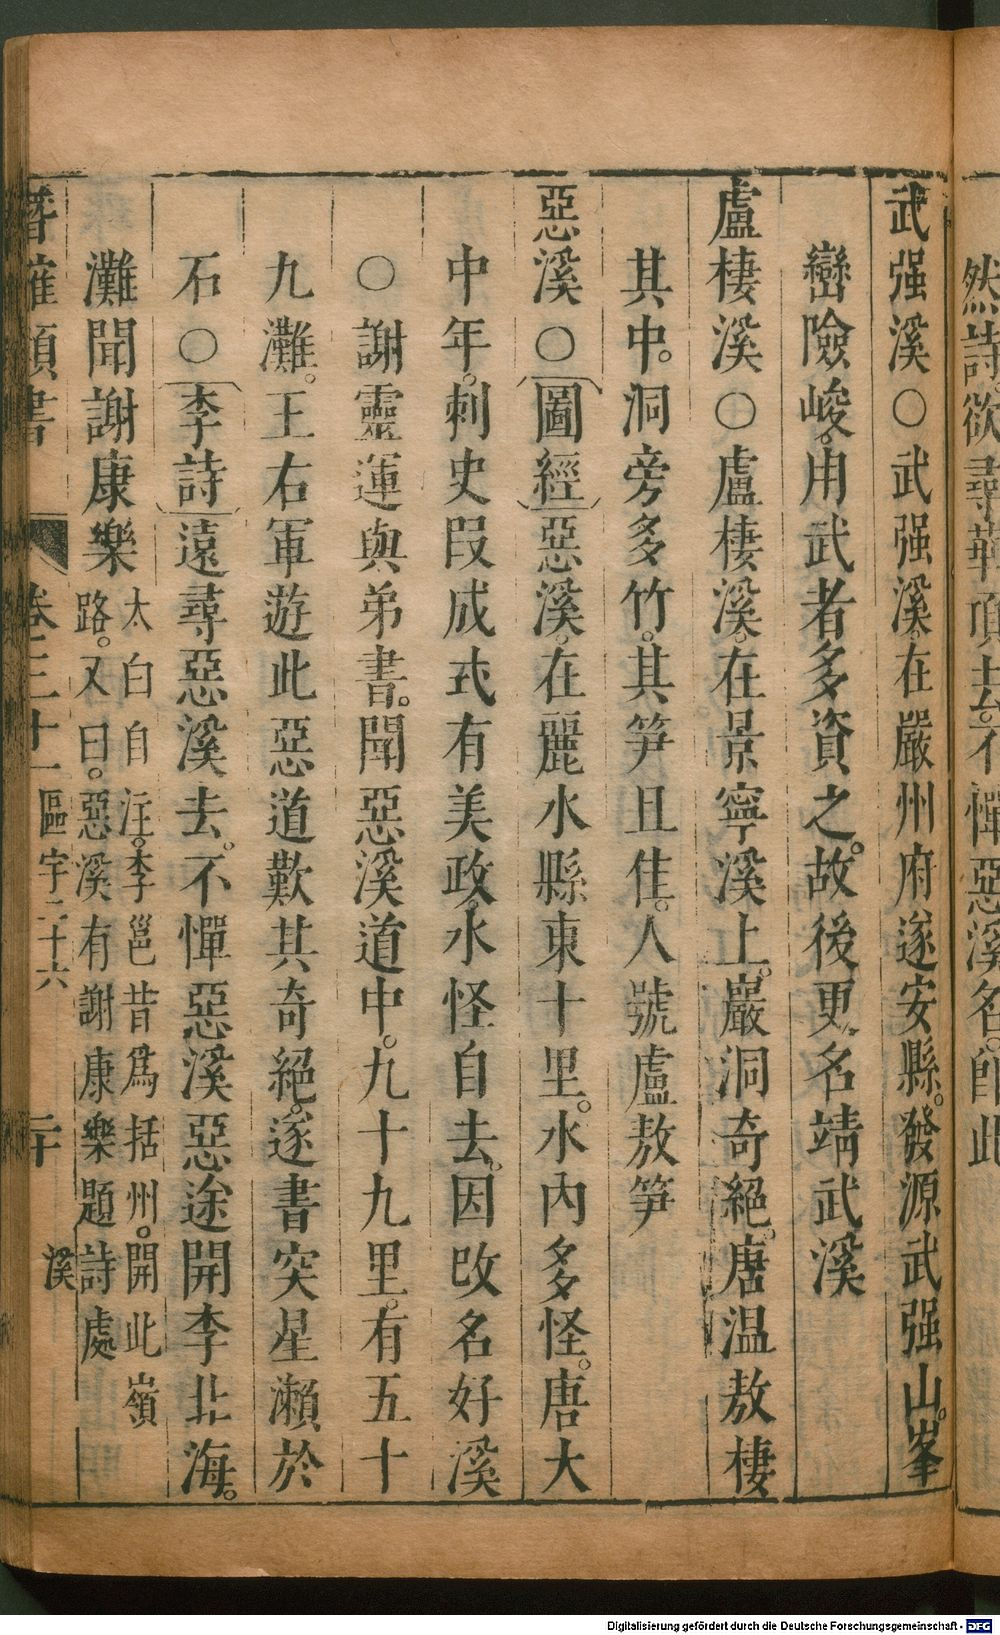 然詩欲尋華頂去不憚惡溪名即此
武强溪○武强溪在嚴州府遂安縣發源武强山峯
巒險峻用武者多資之故後更名靖武溪
盧棲溪○盧棲溪在景寧溪上巖洞奇絕唐温敖棲
其中洞旁多竹其笋且佳人號盧敖笋
惡溪○圖經惡溪在麗水縣東十里水內多怪唐大
中年刺史段成式有美政水怪自去因改名好溪
○謝靈運與弟書聞惡溪道中九十九里有五十
九灘王右軍遊此惡道歎其奇絕遂書突星瀨於
石○李詩遠尋惡溪去不憚惡溪惡途開李北海
灘聞謝康樂太白自注李邕昔爲括州開此嶺
路又曰惡溪有謝康樂題詩處
潛確類書 卷三十一區宇二十六 二十 溪
Digitalisierung gefördert durch die Deutsche Forschungsgemeinschaft - DFG